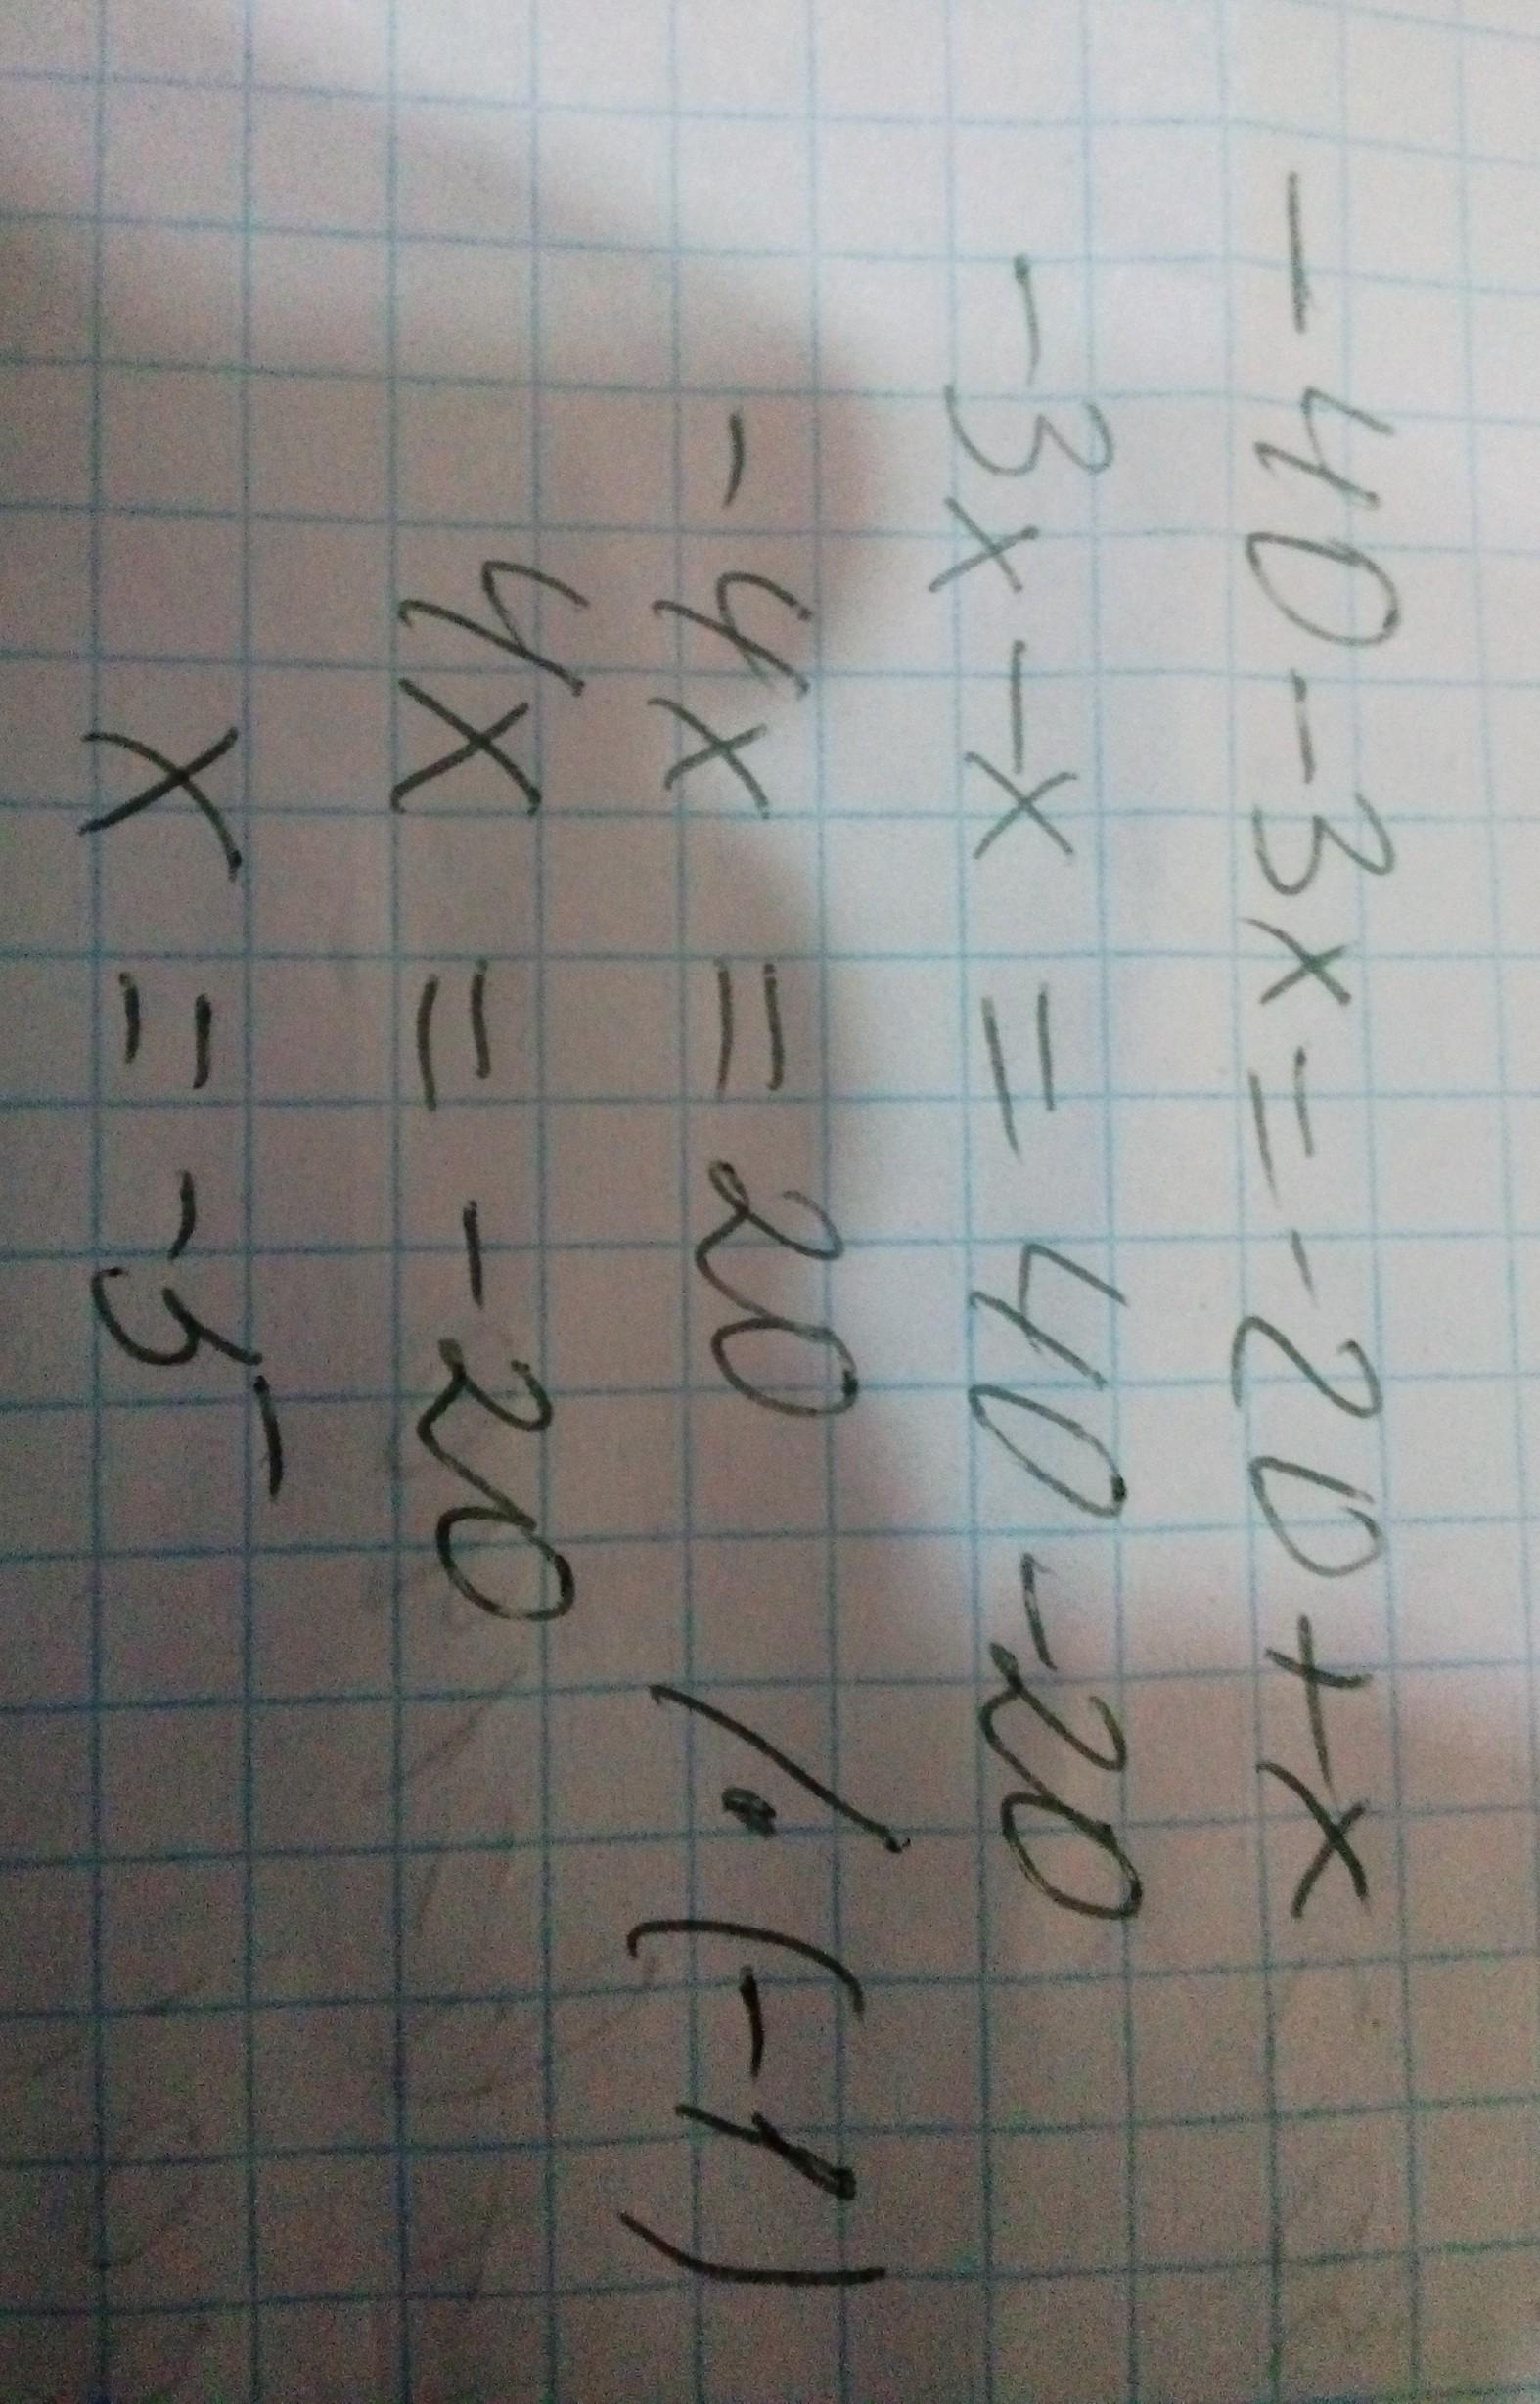 -40-3x=-20+x
-3x-x=40-20
-4x=20 /·(-1)
4x=-20
x=-5